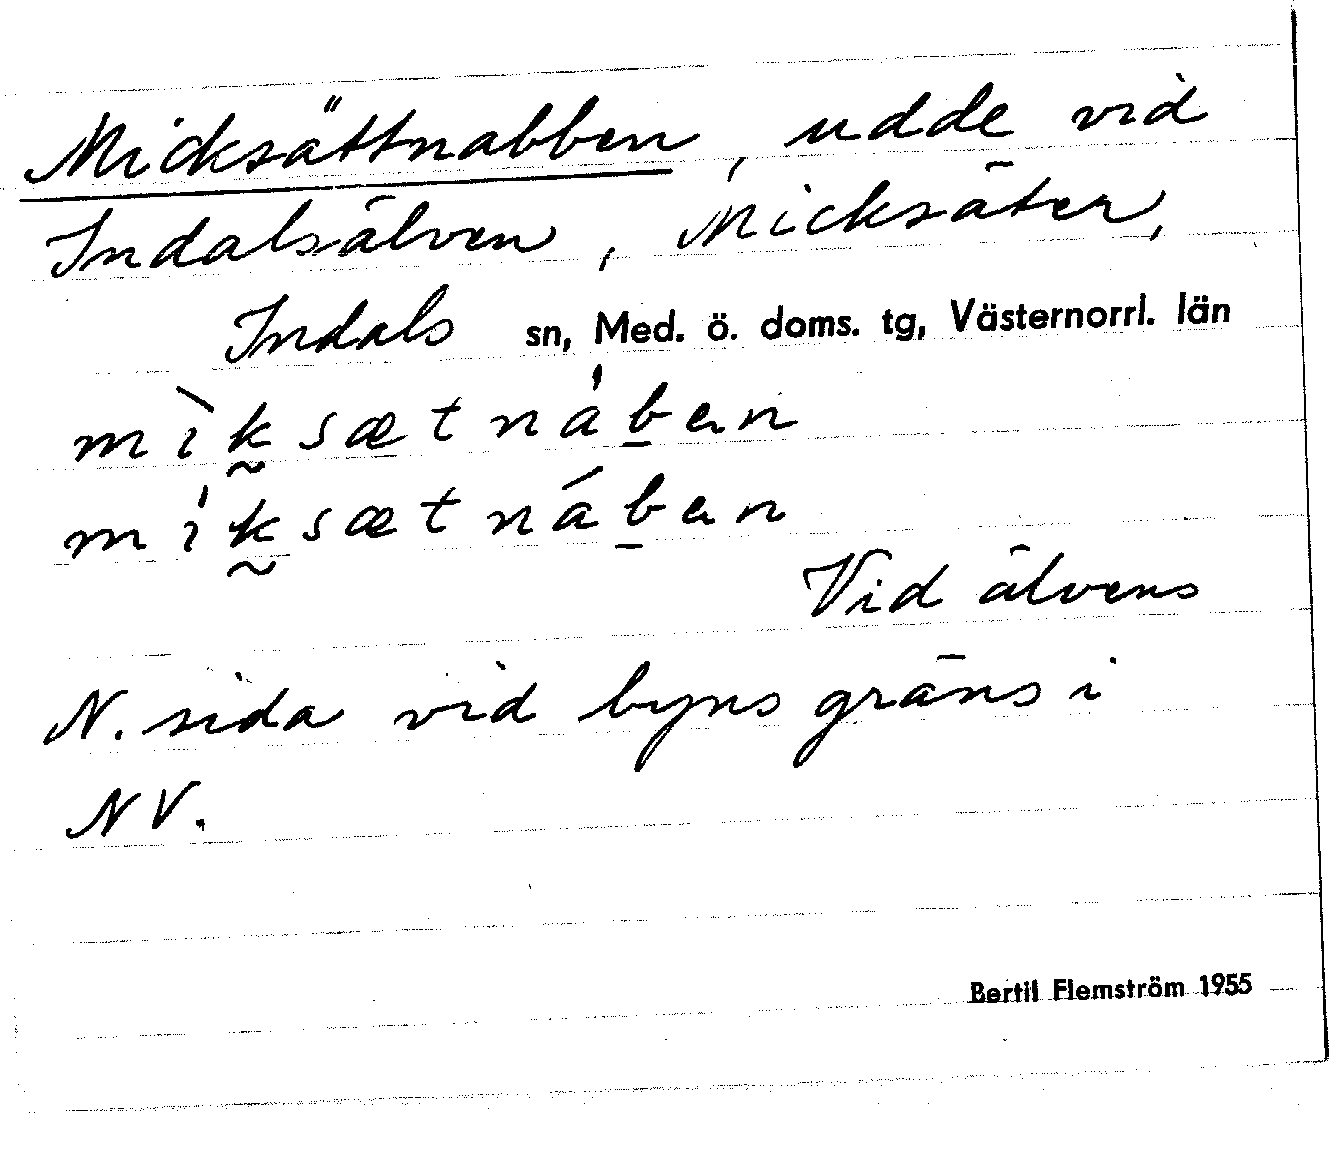 Micksättnabben, udde vid
Indalsälven, Micksäter,
Indals sn, Med. ö. doms. tg, Västernorrl. län
mìk̰sætnáb̠en
mík̰sætnáb̠en
Vid älvens
N. sida vid byns gräns i
NV.
Bertil Flemström 1955